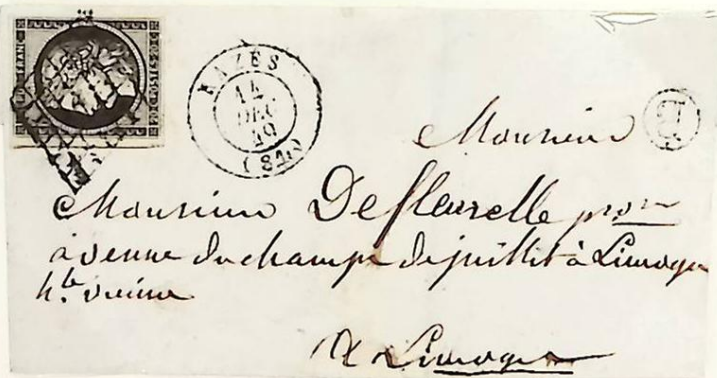 FRANC
POSTES
RAZÈS
14
DEC
49
(81)
Monsieur
Monsieur Defleurelle pron
avenue du champ de juillet à Limoges
hte vienne
à Limoges